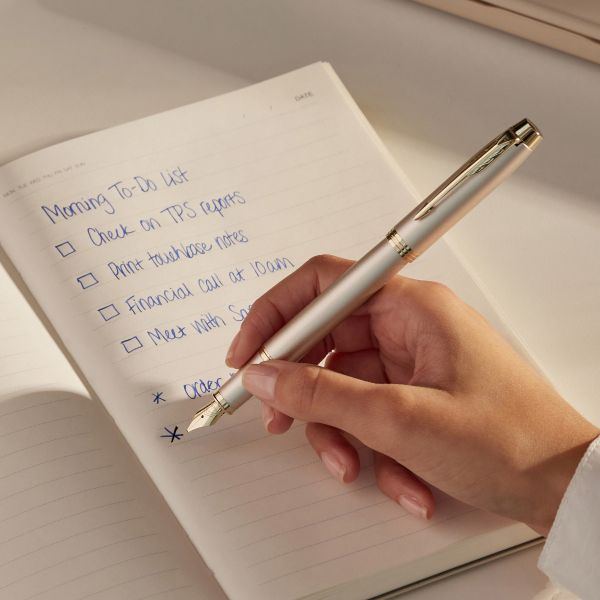 DATE
MON TUE WED THU FRI SAT SUN
Morning To-Do List
Check on TPS reports
Print touchbase notes
Financial call at 10am
Meet with
* order
*